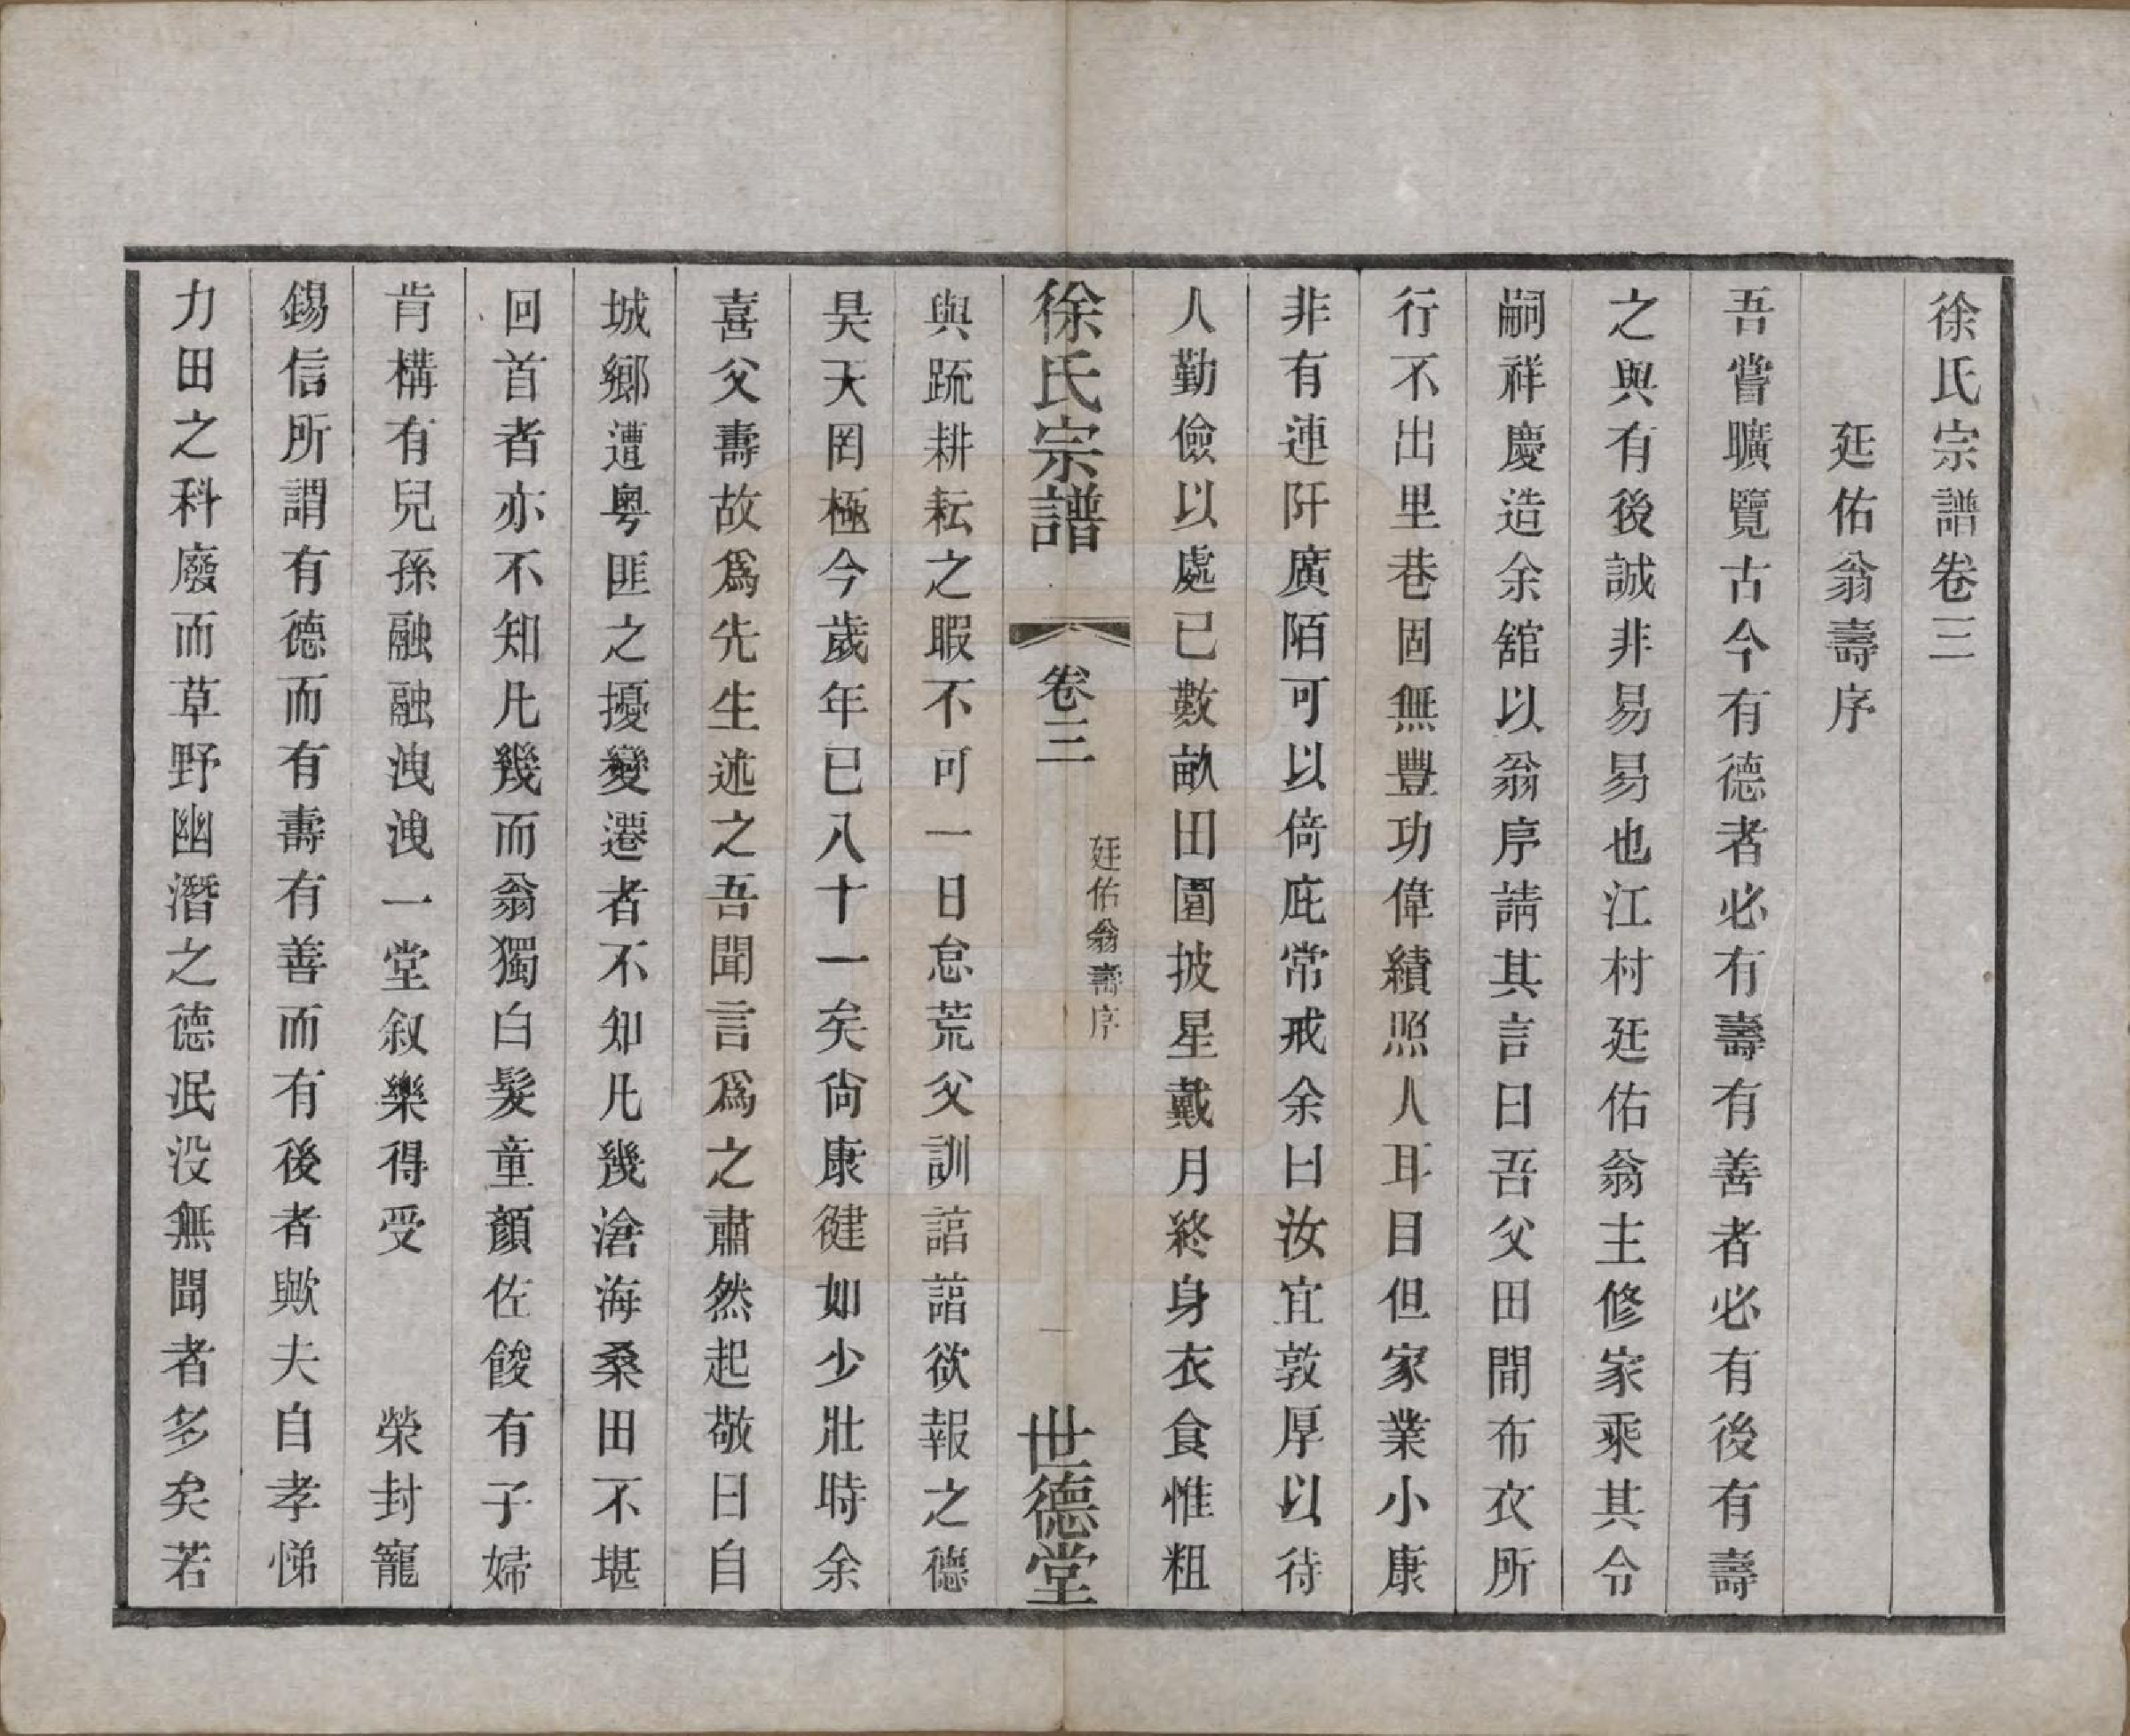 徐氏宗譜卷三
廷佑翁壽序
吾嘗曠覽古今有德者必有壽有善者必有後有壽
之與有後誠非易易也江村廷佑翁主修家乘其令
嗣祥慶造余舘以翁序請其言曰吾父田間布衣所
行不出里巷固無豐功偉績照人耳目但家業小康
非有連阡廣陌可以倚庇常戒余曰汝宜敦厚以待
人勤儉以處已數畝田園披星戴月終身衣食惟粗
徐氏宗譜
卷三
廷佑翁壽序
一
世德堂
與䟽耕耘之暇不可一日怠荒父訓諳諳欲報之德
昊天罔極今歲年已八十一矣尙康健如少壯時余
喜父壽故爲先生述之吾聞言爲之肅然起敬曰自
城鄉遭粵匪之擾變遷者不知凡幾滄海桑田不堪
回首者亦不知凡幾而翁獨白髮童顏佐餕有子婦
肯構有兒孫融融洩洩一堂叙樂得受　　榮封寵
錫信所謂有德而有壽有善而有後者歟夫自孝悌
力田之科廢而草野幽潛之德泯没無聞者多矣若